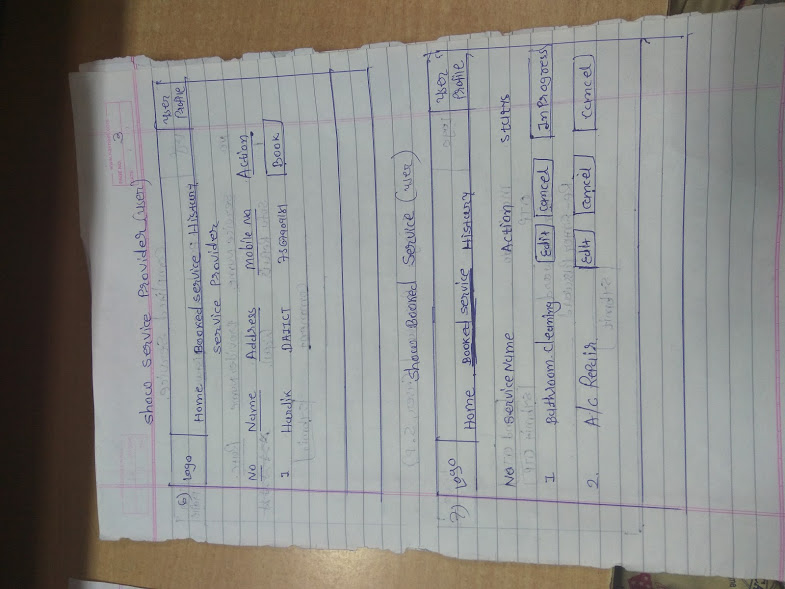 3
Show Service Provider (user)
6) Logo User Profile
Home Booked service History
Service Provider
No Name Address Mobile No Action
1 Hardik DAIICT Book
Show Booked Service (user)
7) Logo User Profile
Home Booked service History
No Service Name Action Status
1. Bathroom Cleaning Edit Cancel In Progress
2. A/C Repair Edit Cancel Cancel